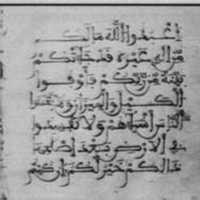 اعبدوا الله ما لكم
من اله غيره قد جاءتكم
بينة من ربكم فاوفوا
الكيل والميزان ولا تبخسوا
الناس اشياءهم ولا تفسدوا
في الارض بعد اصلاحها
ذلكم خير لكم ان كنتم